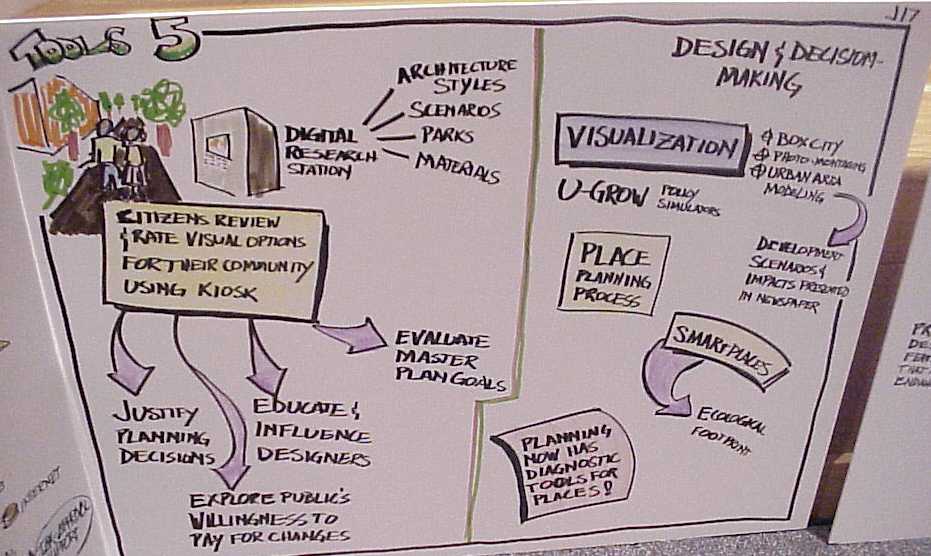 TOOLS 5
DIGITAL
RESEARCH
STATION
ARCHITECTURE
STYLES
SCENARIOS
PARKS
MATERIALS
CITIZENS REVIEW
& RATE VISUAL OPTIONS
FOR THEIR COMMUNITY
USING KIOSK
EVALUATE
MASTER
PLAN GOALS
JUSTIFY
PLANNING
DECISIONS
EDUCATE &
INFLUENCE
DESIGNERS
EXPLORE PUBLIC'S
WILLINGNESS TO
PAY FOR CHANGES
J17
DESIGN & DECISION-
MAKING
VISUALIZATION
BOX CITY
PHOTO-MONTAGING
URBAN AREA
MODELING
U-GROW POLICY
SIMULATORS
DEVELOPMENT
SCENARIOS &
IMPACTS PRESENTED
IN NEWSPAPER
PLACE
PLANNING
PROCESS
SMART PLACES
ECOLOGICAL
FOOTPRINT
PLANNING
NOW HAS
DIAGNOSTIC
TOOLS FOR
PLACES!
INTERNET